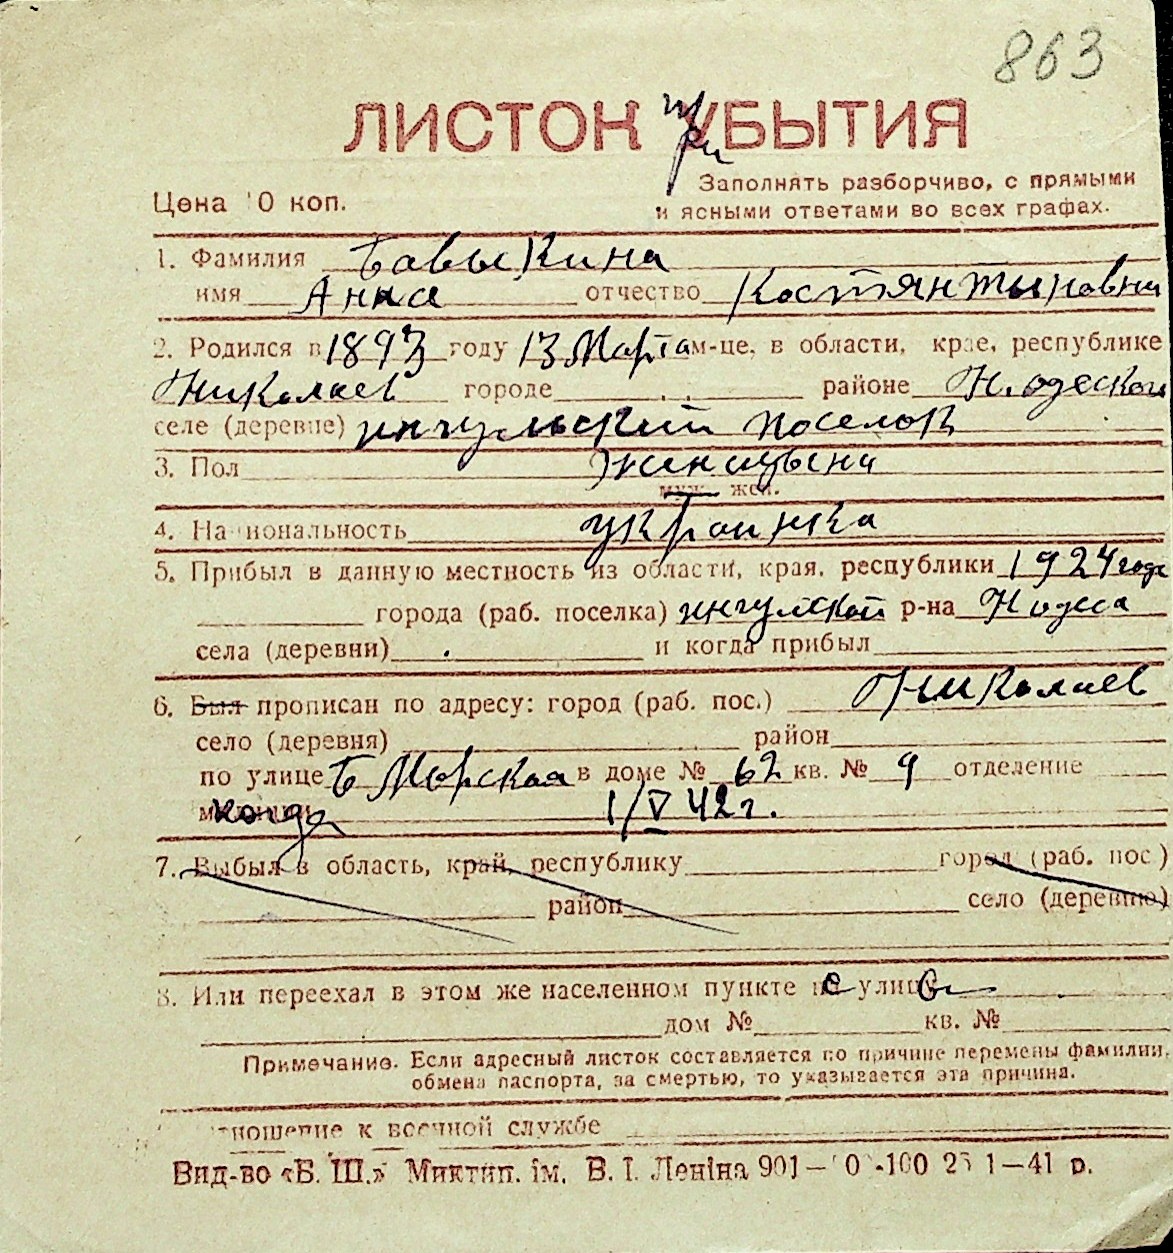 863
ЛИСТОК при УБЫТИЯ
Цена 10 коп.
Заполнять разборчиво, с прямыми
и ясными ответами во всех графах.
1. Фамилия Бавыкина
имя Анна отчество Костянтыновна
2. Родился в 1893 году 13 Марта м-це, в области, крае, республике
Николаев городе районе Н. одеской
селе (деревне) ингульский поселок
3. Пол женщына
муж. жен.
4. Национальность украинка
5. Прибыл в данную местность из области, края, республики 1924 годе
города (раб. поселка) ингулской р-на Н одесса
села (деревни) и когда прибыл
6. Был прописан по адресу: город (раб. пос.) Николаев
село (деревня) район
по улице Б Морская в доме № 62 кв. № 9 отделение
милиции когда 1/V 42 г.
7. Выбыл в область, край, республику город (раб. пос.)
район село (деревню)
8. Или переехал в этом же населенном пункте с улицы
дом № кв. №
Примечание. Если адресный листок составляется по причине перемены фамилии,
обмена паспорта, за смертью, то указывается эта причина.
Отношение к военной службе
Вид-во «Б. Ш.» Миктип. ім. В. І. Леніна 901— 0 -100 25 1—41 р.